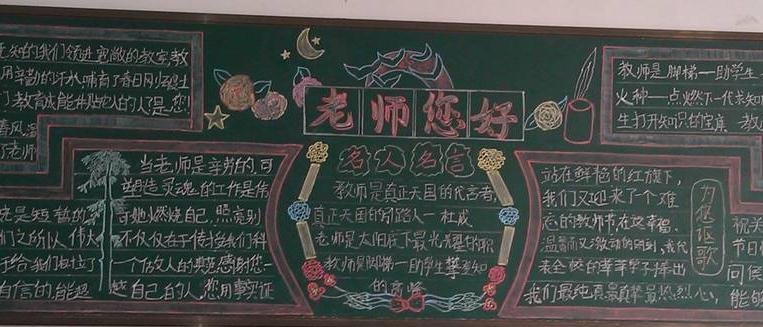 老师您好
知的我们领进宽敞的教室教
用辛勤的汗水哺育了春日
教育成能
春风
了老师
当老师是辛劳的,可
塑造灵魂的工作是伟
可她燃烧自己,照亮别
不仅仅在于传授我们科
一个做人的典范感谢您
越自己的人,您用事实证
先是短暂的
们之所以伟大
于给我们树立了
自信的,能超
名人名言
教师是真正天国的代言者,
真正天国的引路人一杜威
老师是太阳底下最光辉的职
教师是脚梯一助学生攀登知
的高峰
教师是脚梯一助学生
火种一点燃下一代求知
生打开知识的宝典
站在鲜艳的红旗下,
我们又迎来了一个难
忘的教师节在这幸福
温馨而又激动的时刻,我代
表全校的莘莘学子捧出
我们最纯真最真挚最热烈心,
为您讴歌
祝
节日
问候
能的